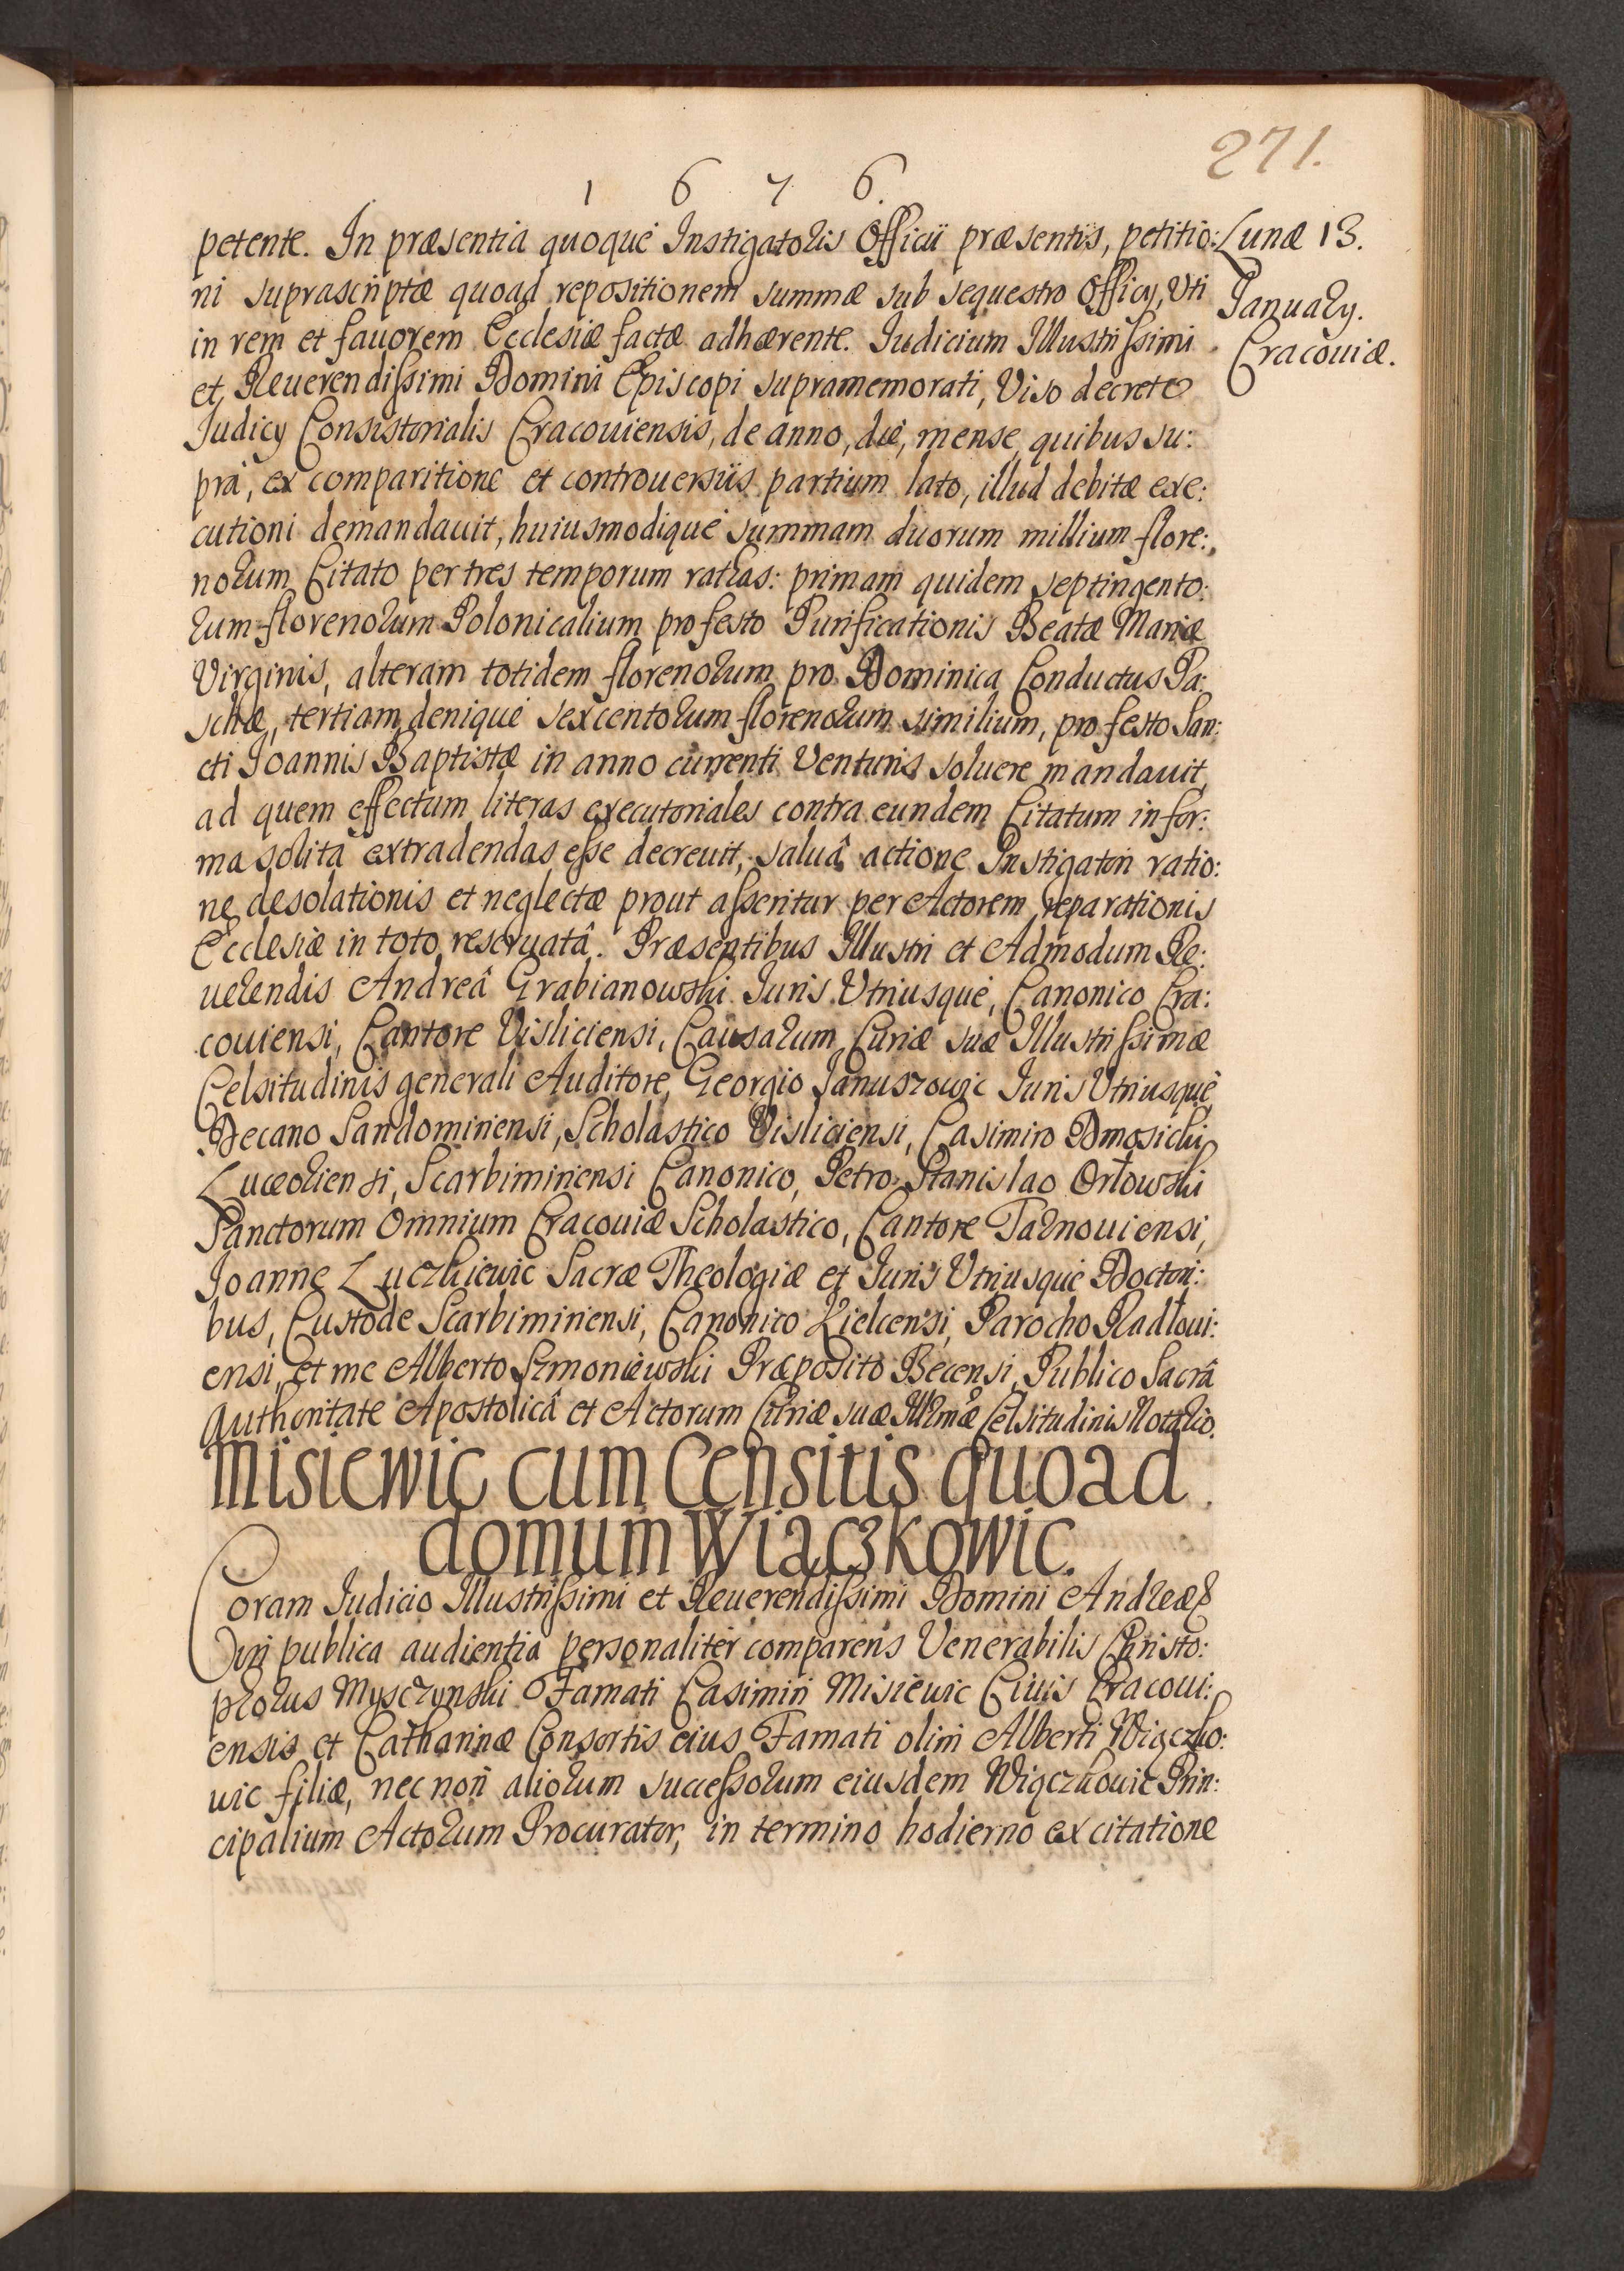 271.
1 6 7 6.
Lunæ 13.
Januarÿ.
Cracouiæ.
petente. In præsentia quoquè Instigatoris Officii præsentis, petitio:
ni suprascriptæ quoad repositionem summæ sub sequestro Officÿ, Vti
in rem et fauorem Ecclesiæ factæ adhærente. Iudicium Illustrissimi
et Reuerendissimi Domini Episcopi supramemorati, Viso decreto
Iudicÿ Consistorialis Cracouiensis, de anno, die, mense, quibus su:
prà, ex comparitione et controuersiis partium lato, illud debitæ exe:
cutioni demandauit, huiusmodiquè summam duorum millium flore:
norum Citato per tres temporum rattas: primam quidem septingento:
rum florenorum Polonicalium pro festo Purificationis Beatæ Mariæ
Virginis, alteram totidem florenorum pro Dominica Conductus Pa:
schæ, tertiam deniquè sexcentorum florenorum similium, pro festo San:
cti Joannis Baptistæ in anno currenti Venturis soluere mandauit,
ad quem effectum literas executoriales contra eundem Citatum in for:
ma solita extradendas esse decreuit, saluâ actione Instigatori ratio:
ne desolationis et neglectæ prout asseritur per Actorem reparationis
Ecclesiæ in toto reseruatâ. Præsentibus Illustri et Admodum Re:
uerendis Andreâ Grabianowski Iuris Vtriusquè, Canonico Cra:
couiensi, Cantore Visliciensi, Causarum Curiæ suæ Illustrissimæ
Celsitudinis generali Auditore, Georgio Januszowic Iuris Vtriusquè
Decano Sandomiriensi, Scholastico Visliciensi, Casimiro Dmosicki
Luceoriensi, Scarbimiriensi Canonico, Petro Stanislao Orłowski
Sanctorum Omnium Cracouiæ Scholastico, Cantore Tarnouiensi,
Joanne Luczkiewic Sacræ Theologiæ et Iuris Vtriusquè Doctori:
bus, Custode Scarbimiriensi, Canonico Kielcensi, Parocho Radłoui:
ensi, et me Alberto Szmoniewski Præposito Becensi, Publico Sacrâ
Authoritate Apostolicâ et Actorum Curiæ suæ Illmæ Celsitudinis Notario.
Misiewic cum Censitis quoad
domum Wiączkowic.
Coram Iudicio Illustrissimi et Reuerendissimi Domini Andreæ &
in publica audientia personalitèr comparens Venerabilis Christo:
phorus Mysczynski Famati Casimiri Misiewic Ciuis Cracoui:
ensis et Catharinæ Consortis eius Famati olim Alberti Wiączko:
uic filiæ, nec non aliorum successorum eiusdem Wiączkouic Prin:
cipalium Actorum Procurator, in termino hodierno ex citatione